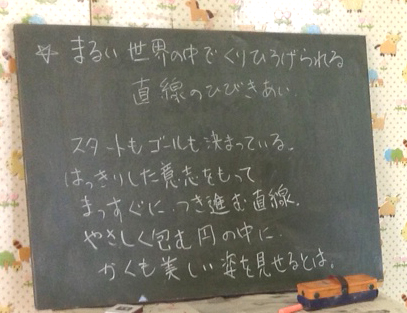 ☆ まるい世界の中でくりひろげられる
直線のひびきあい.
スタートもゴールも決まっている.
はっきりした意志をもって
まっすぐに つき進む直線.
やさしく包む円の中に.
かくも美しい姿を見せるとは.